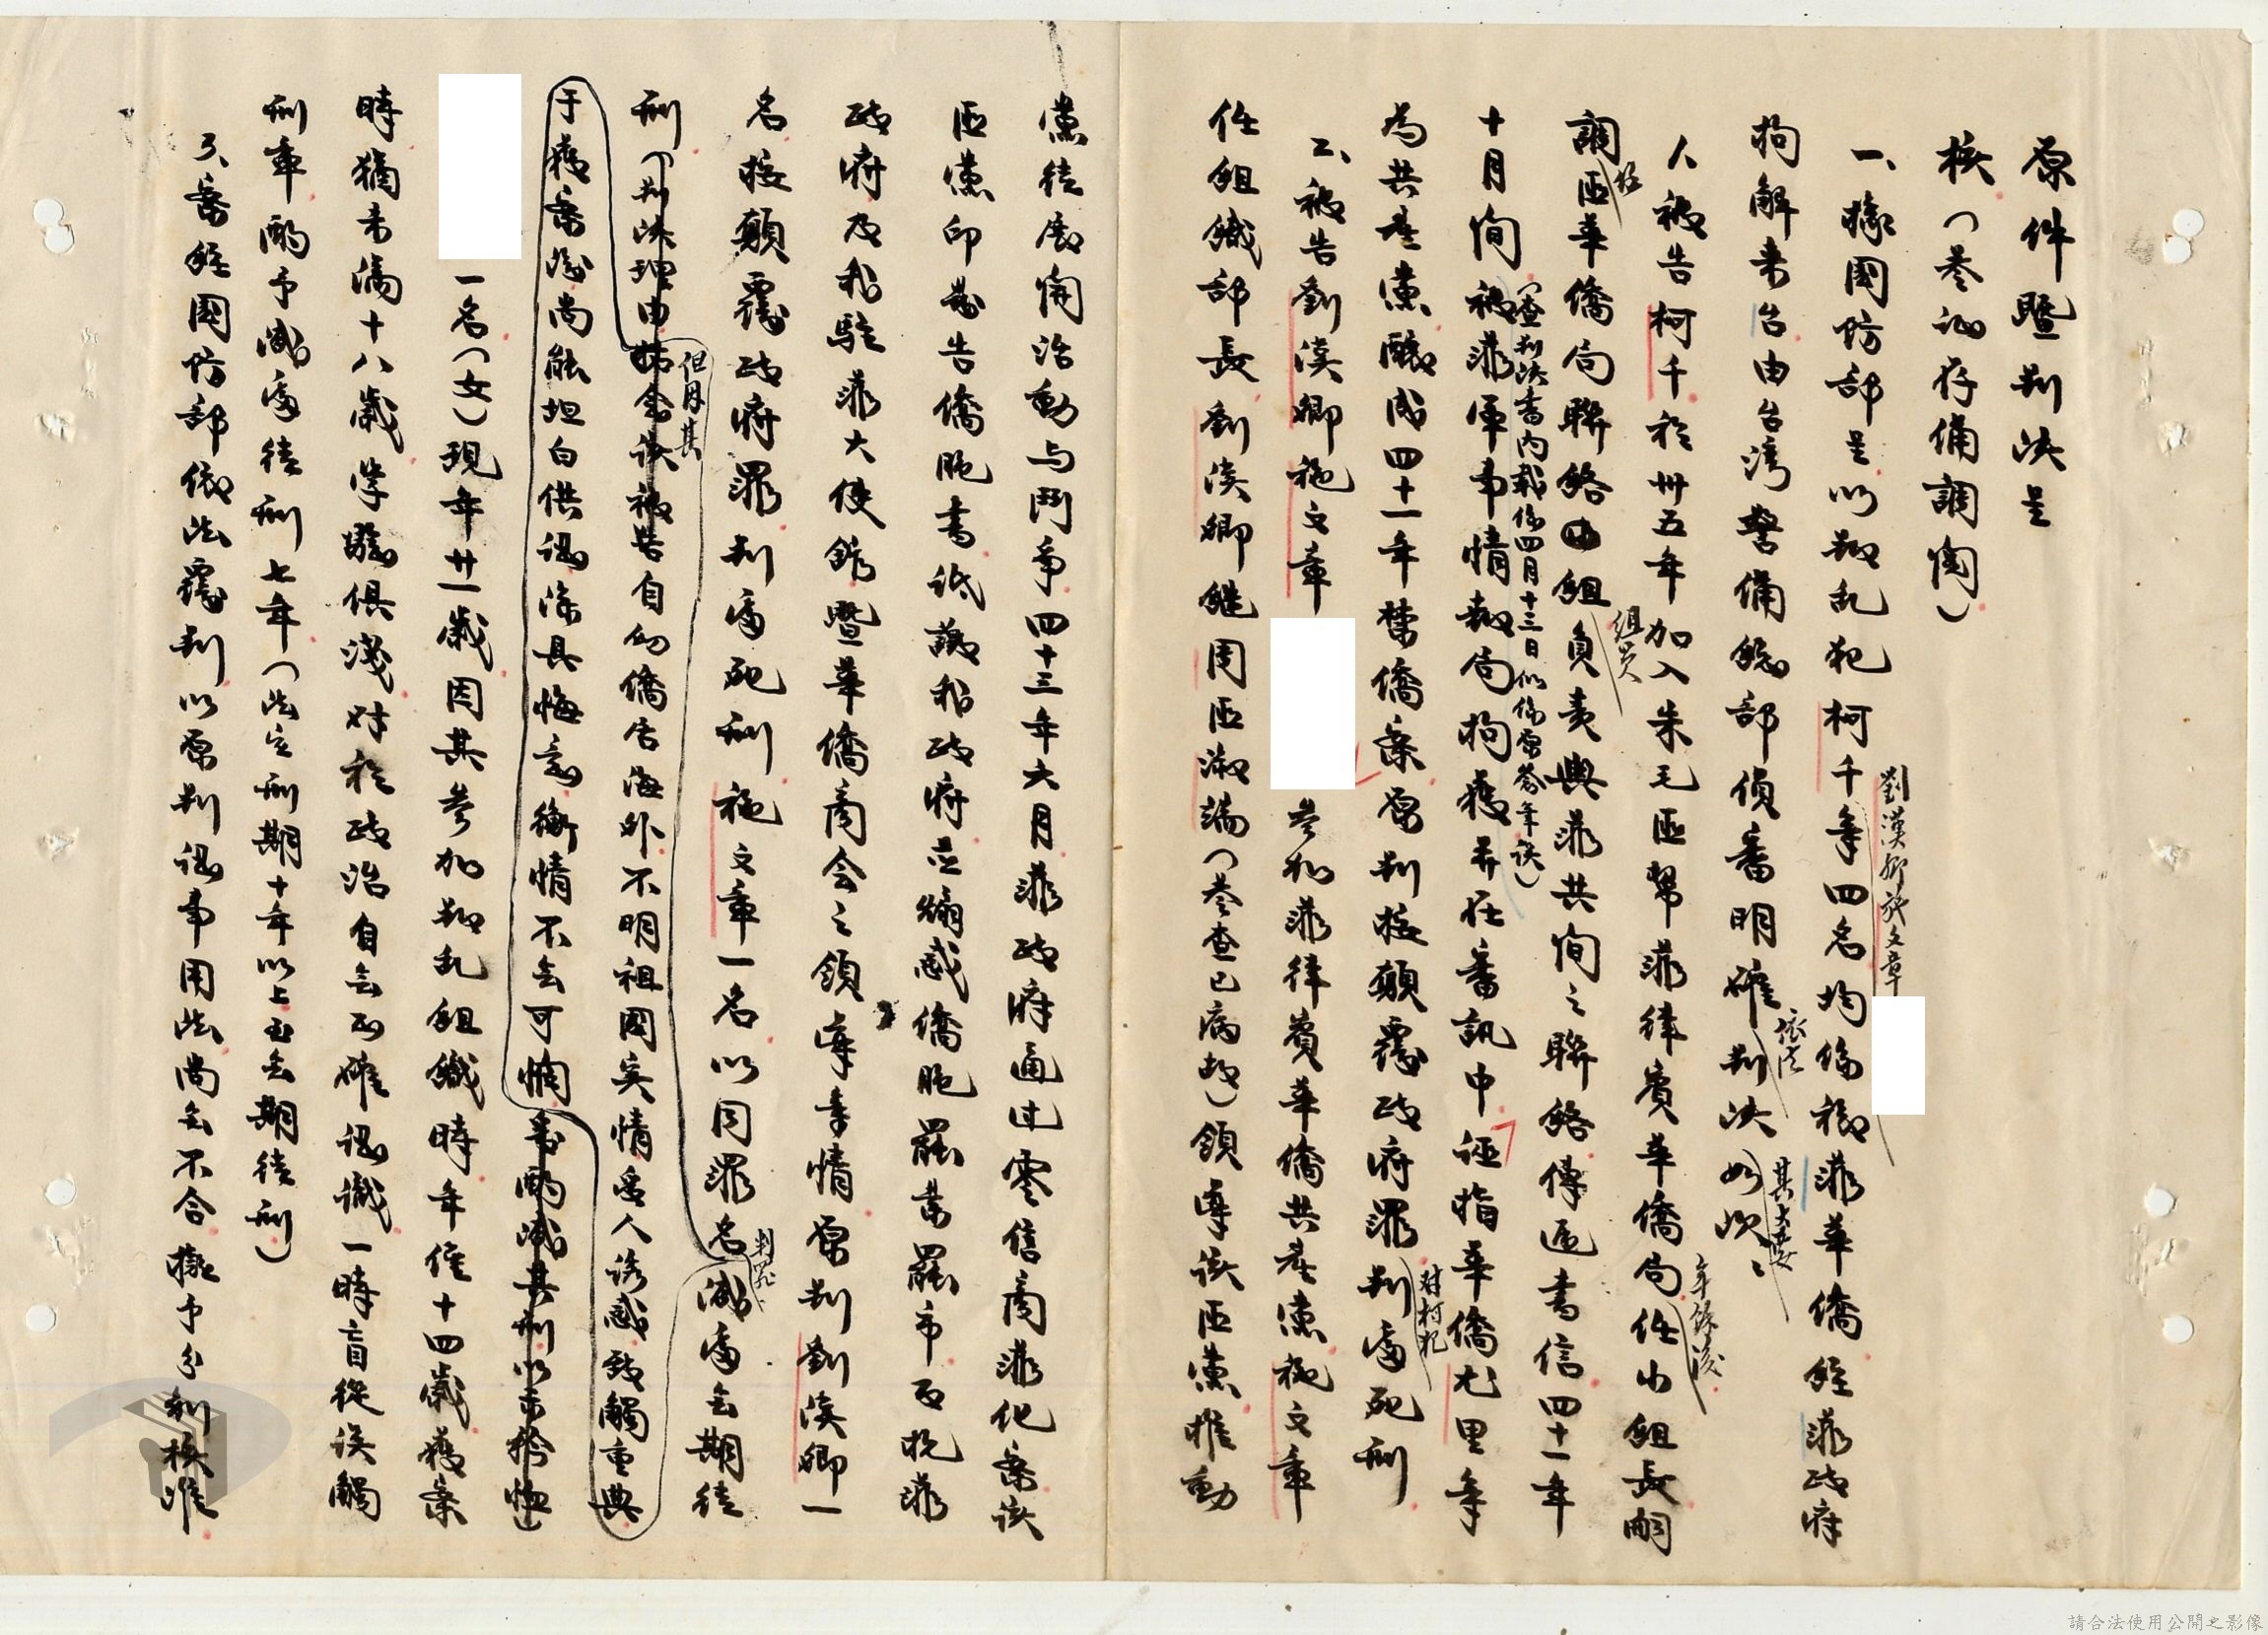 原件暨判決呈
核(卷證存備調閱)
一、據國防部呈以叛乱犯柯千
劉漢卿施文章
等四名均係旅菲華僑經菲政府
拘解來台由台灣警備總部偵審明確
依法
判決如次、
其大要
人被告柯千於卅五年加入朱毛匪幫菲律賓華僑局任小組長
年餘後
嗣
調
匪華僑局聯絡組
組員
負責與菲共間之聯絡傳遞書信四十一年
十月間
(查判決書內載係四月十三日似係原卷筆誤)
被菲軍事情報局拘獲并在審訊中誣指華僑七里等
為共產黨釀成四十一年禁僑案原判按顛覆政府罪
對柯犯
判處死刑
二、被告劉漢卿施文章
參加菲律賓華僑共產黨施文章
任組織部長劉漢卿繼周匪淑端(卷查已病故)領導該匪黨推動
黨徒展開活動与鬥爭四十三年六月菲政府通过零售商菲化案該
匪黨印發告僑胞書詆譭我政府並煽惑僑胞罷業罷市反抗菲
政府及我駐菲大使館暨華僑商会之領導等情原判劉漢卿一
名按顛覆政府罪判處死刑施文章一名以同罪名
判罪
減處無期徒
刑(判決理由
但因其
姑念該被告自幼僑居海外不明祖國实情受人誘惑致觸重典
于獲案後尚能坦白供認深具悔意衡情不無可憫爰酌減其刑以示矜恤)
一名(女)現年廿一歲因其參加叛乱組織時年僅十四歲獲案
時猶未滿十八歲學驗俱淺对於政治自無正確認識一時盲從誤觸
刑章酌予減處徒刑七年(法定刑期十年以上至無期徒刑)
3、案經國防部依法覆判以原判認事用法尚無不合擬予分別核准
請合法使用公開之影像